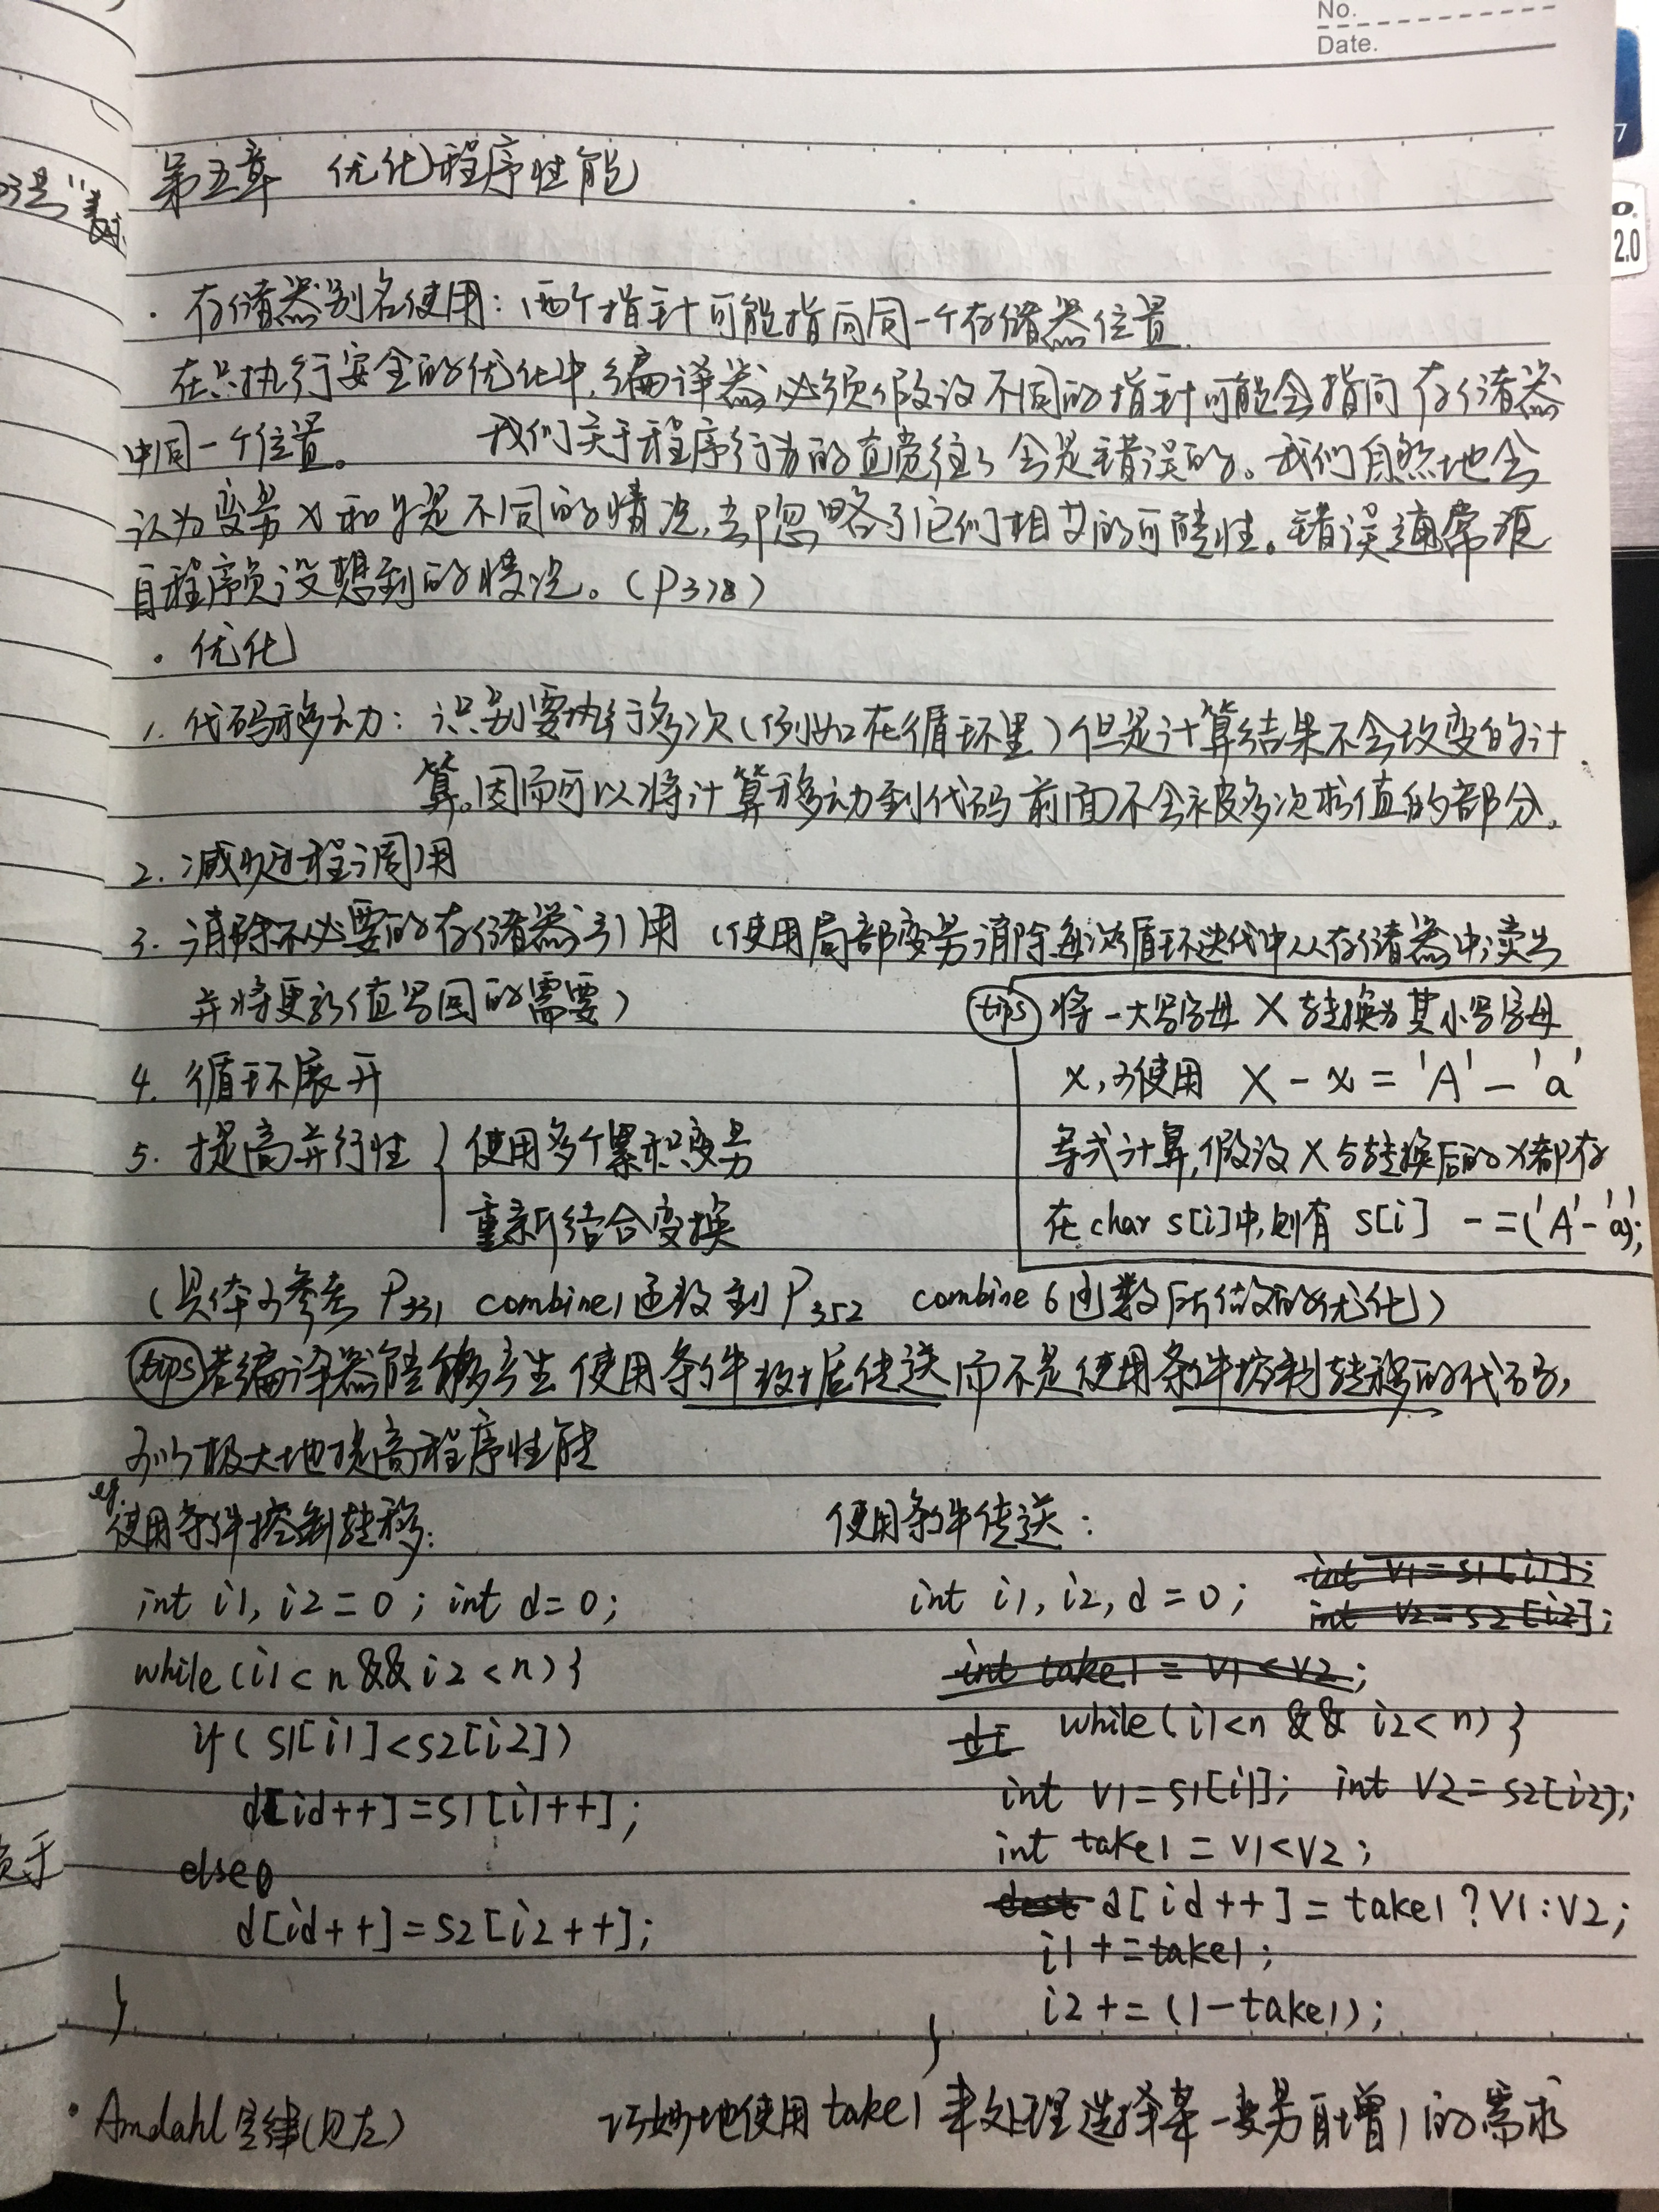 No.
Date.
第五章 优化程序性能
· 存储器别名使用：两个指针可能指向同一个存储器位置.
在只执行安全的优化中,编译器必须假设不同的指针可能会指向存储器
中同一个位置。 我们关于程序行为的直觉往往会是错误的。我们自然地会
认为变量x和y是不同的情况,却忽略了它们相等的可能性。错误通常源
自程序员没想到的情况。(P378)
· 优化
1. 代码移动：识别要执行多次(例如在循环里)但是计算结果不会改变的计
算。因而可以将计算移动到代码前面不会被多次求值的部分。
2. 减少过程调用
3. 消除不必要的存储器引用 (使用局部变量消除每次循环迭代中从存储器中读出
并将更新值写回的需要)
tips 将一大写字母 X 转换为其小写字母
x,可使用 X - x = 'A' - 'a'
等式计算,假设X与转换后的x都存
在char s[i]中,则有 s[i] -=('A'-'a');
4. 循环展开
5. 提高并行性 { 使用多个累积变量
重新结合变换
(具体可参考 P331 combine1函数到P352 combine6函数所做的优化)
tips 若编译器能够产生使用条件数据传送而不是使用条件控制转移的代码,
可以极大地提高程序性能
eg.
使用条件控制转移:
int i1, i2 = 0 ; int d = 0;
while (i1 < n && i2 < n) {
if ( s1[i1] < s2[i2])
d[id++] = s1[i1++];
else
d[id++] = s2[i2++];
}
使用条件传送：
int i1, i2, d = 0;
int v1 = s1[i1];
int v2 = s2[i2];
int take1 = v1 < v2;
while (i1<n && i2<n) {
int v1 = s1[i1]; int v2 = s2[i2];
int take1 = v1<v2;
dest d[id++] = take1 ? v1 : v2;
i1 += take1;
i2 += (1-take1);
}
· Amdahl定律(见左)
巧妙地使用take1来处理选择某一变量自增1的需求